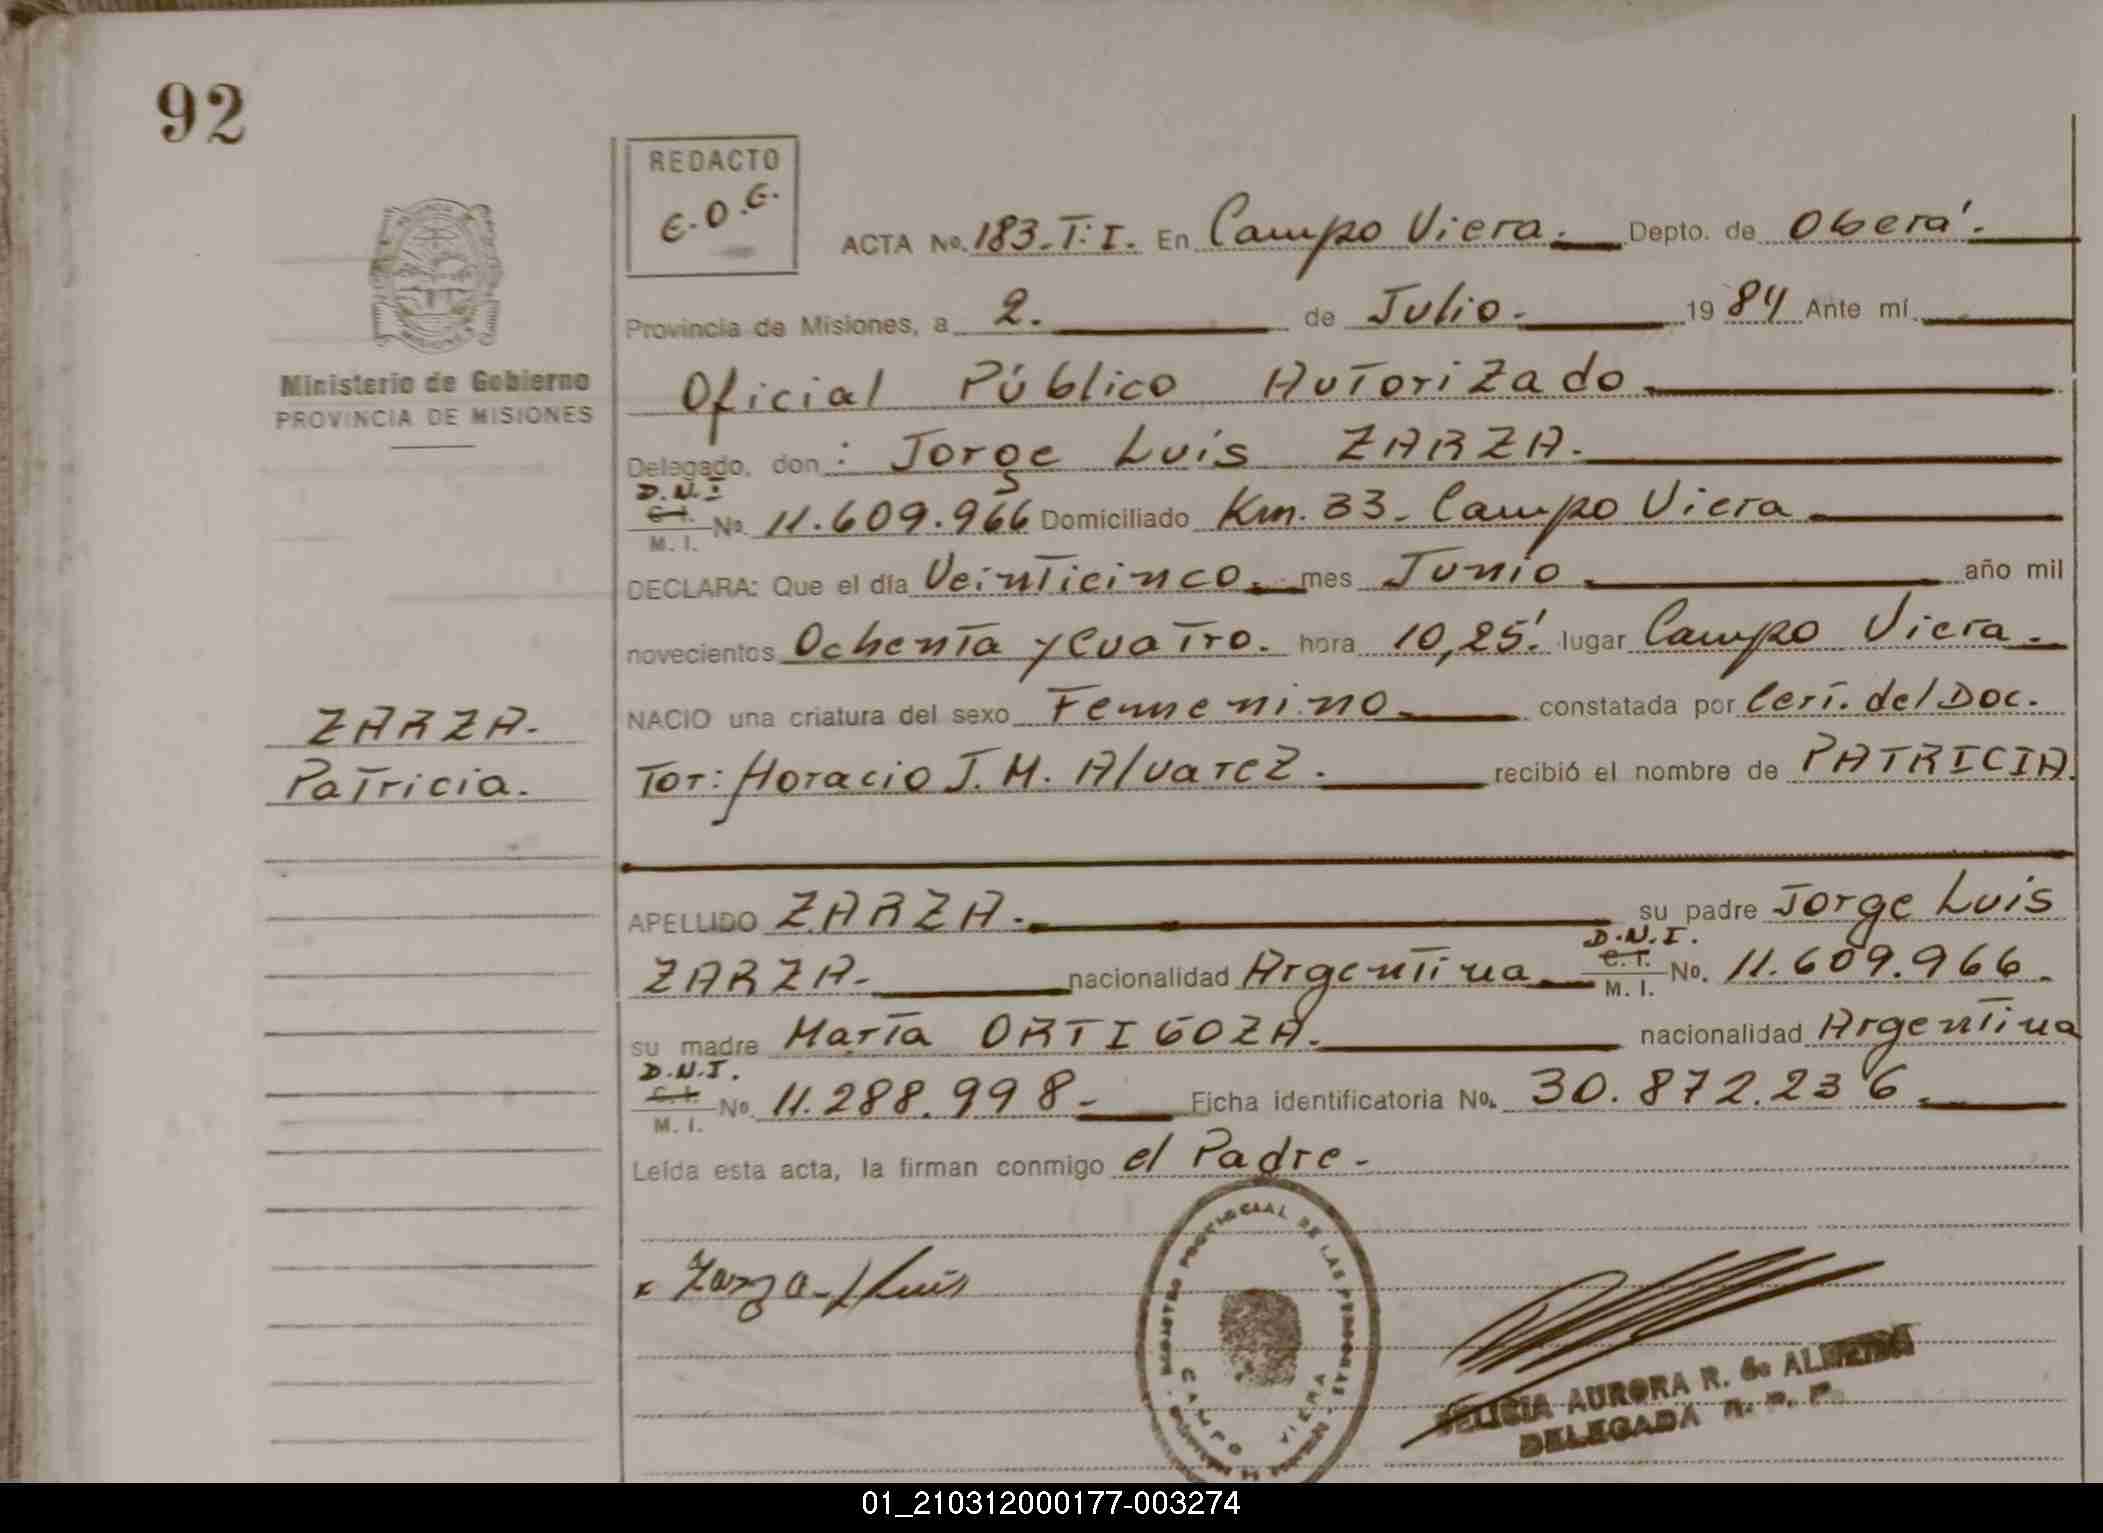 92
REDACTO
E.O.E.
ACTA No. 183.T:I. En Campo Viera. Depto. de Oberá.
Provincia de Misiones, a 2. de Julio. 19 84 Ante mí
Oficial Público Autorizado
Ministerio de Gobierno
PROVINCIA DE MISIONES
Delegado, don: Jorge Luis ZARZA.
D.N.I
C.I.
No. 11.609.966 Domiciliado Km. 33- Campo Viera
M. I.
DECLARA: Que el día Veinticinco. mes Junio año mil
novecientos Ochenta y Cuatro. hora 10,25' lugar Campo Viera.
ZARZA.
NACIO una criatura del sexo Femenino constatada por Cert. del Doc.
Patricia.
Tor: Horacio J.M. Alvarez. recibió el nombre de PATRICIA.
APELLIDO ZARZA. su padre Jorge Luis
D.N.I.
C.I.
ZARZA. nacionalidad Argentina No. 11.609.966.
M. I.
su madre María ORTIGOZA. nacionalidad Argentina
D.N.I.
C.I.
No. 11.288.998- Ficha identificatoria No. 30.872.236.
M. I.
Leída esta acta, la firman conmigo el Padre-
REGISTRO PROVINCIAL DE LAS PERSONAS
CAMPO VIERA
Zarza J Luis
FELICIA AURORA R. de ALMEIDA
DELEGADA R. P. P.
01_210312000177-003274